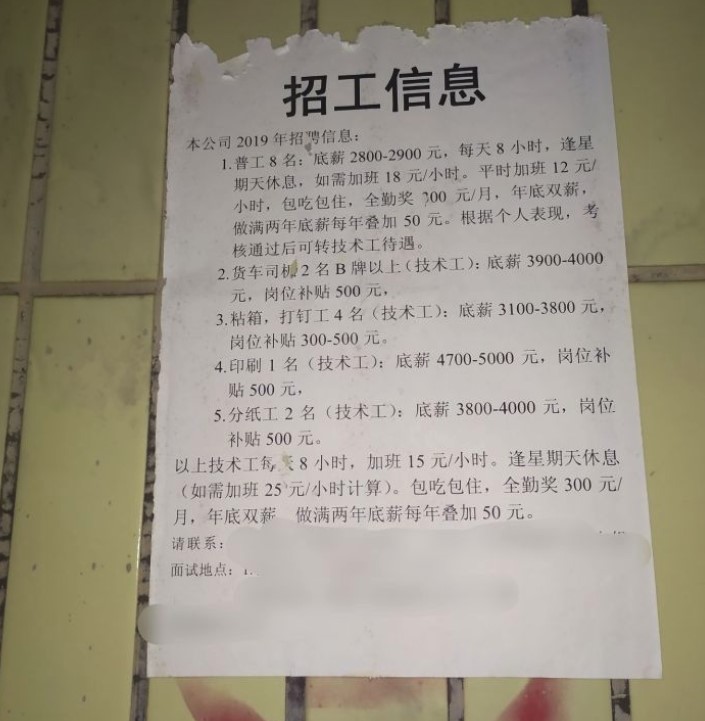 招工信息
本公司 2019 年招聘信息：
1.普工 8 名：底薪 2800-2900 元，每天 8 小时，逢星
期天休息，如需加班 18 元/小时。平时加班 12 元/
小时，包吃包住，全勤奖 00 元/月，年底双薪，
做满两年底薪每年叠加 50 元。根据个人表现，考
核通过后可转技术工待遇。
2.货车司机 2 名 B 牌以上（技术工）：底薪 3900-4000
元，岗位补贴 500 元，
3.粘箱，打钉工 4 名（技术工）：底薪 3100-3800 元，
岗位补贴 300-500 元。
4.印刷 1 名（技术工）：底薪 4700-5000 元，岗位补
贴 500 元，
5.分纸工 2 名（技术工）：底薪 3800-4000 元，岗位
补贴 500 元。
以上技术工每天 8 小时，加班 15 元/小时。逢星期天休息
（如需加班 25 元/小时计算）。包吃包住，全勤奖 300 元/
月，年底双薪 做满两年底薪每年叠加 50 元。
请联系：
面试地点：